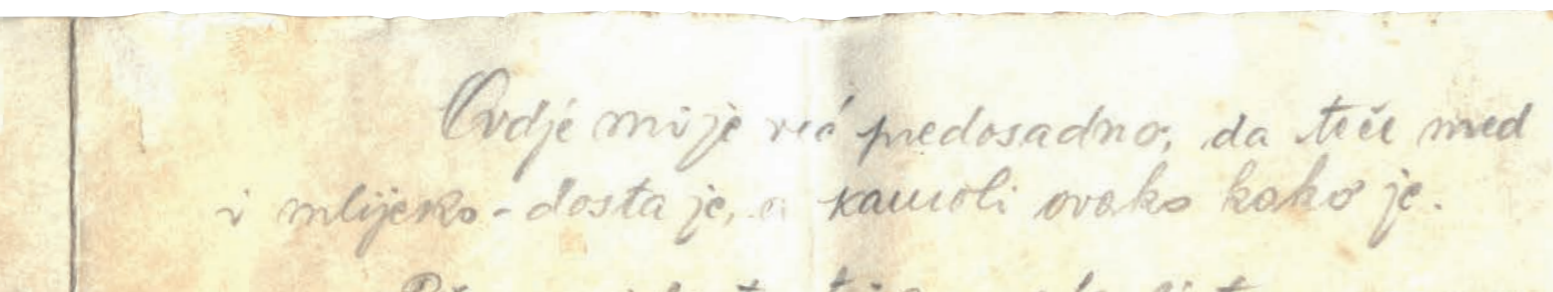 Ovdje mi je već predosadno, da teče med
i mlijeko - dosta je, a kamoli ovako kako je.